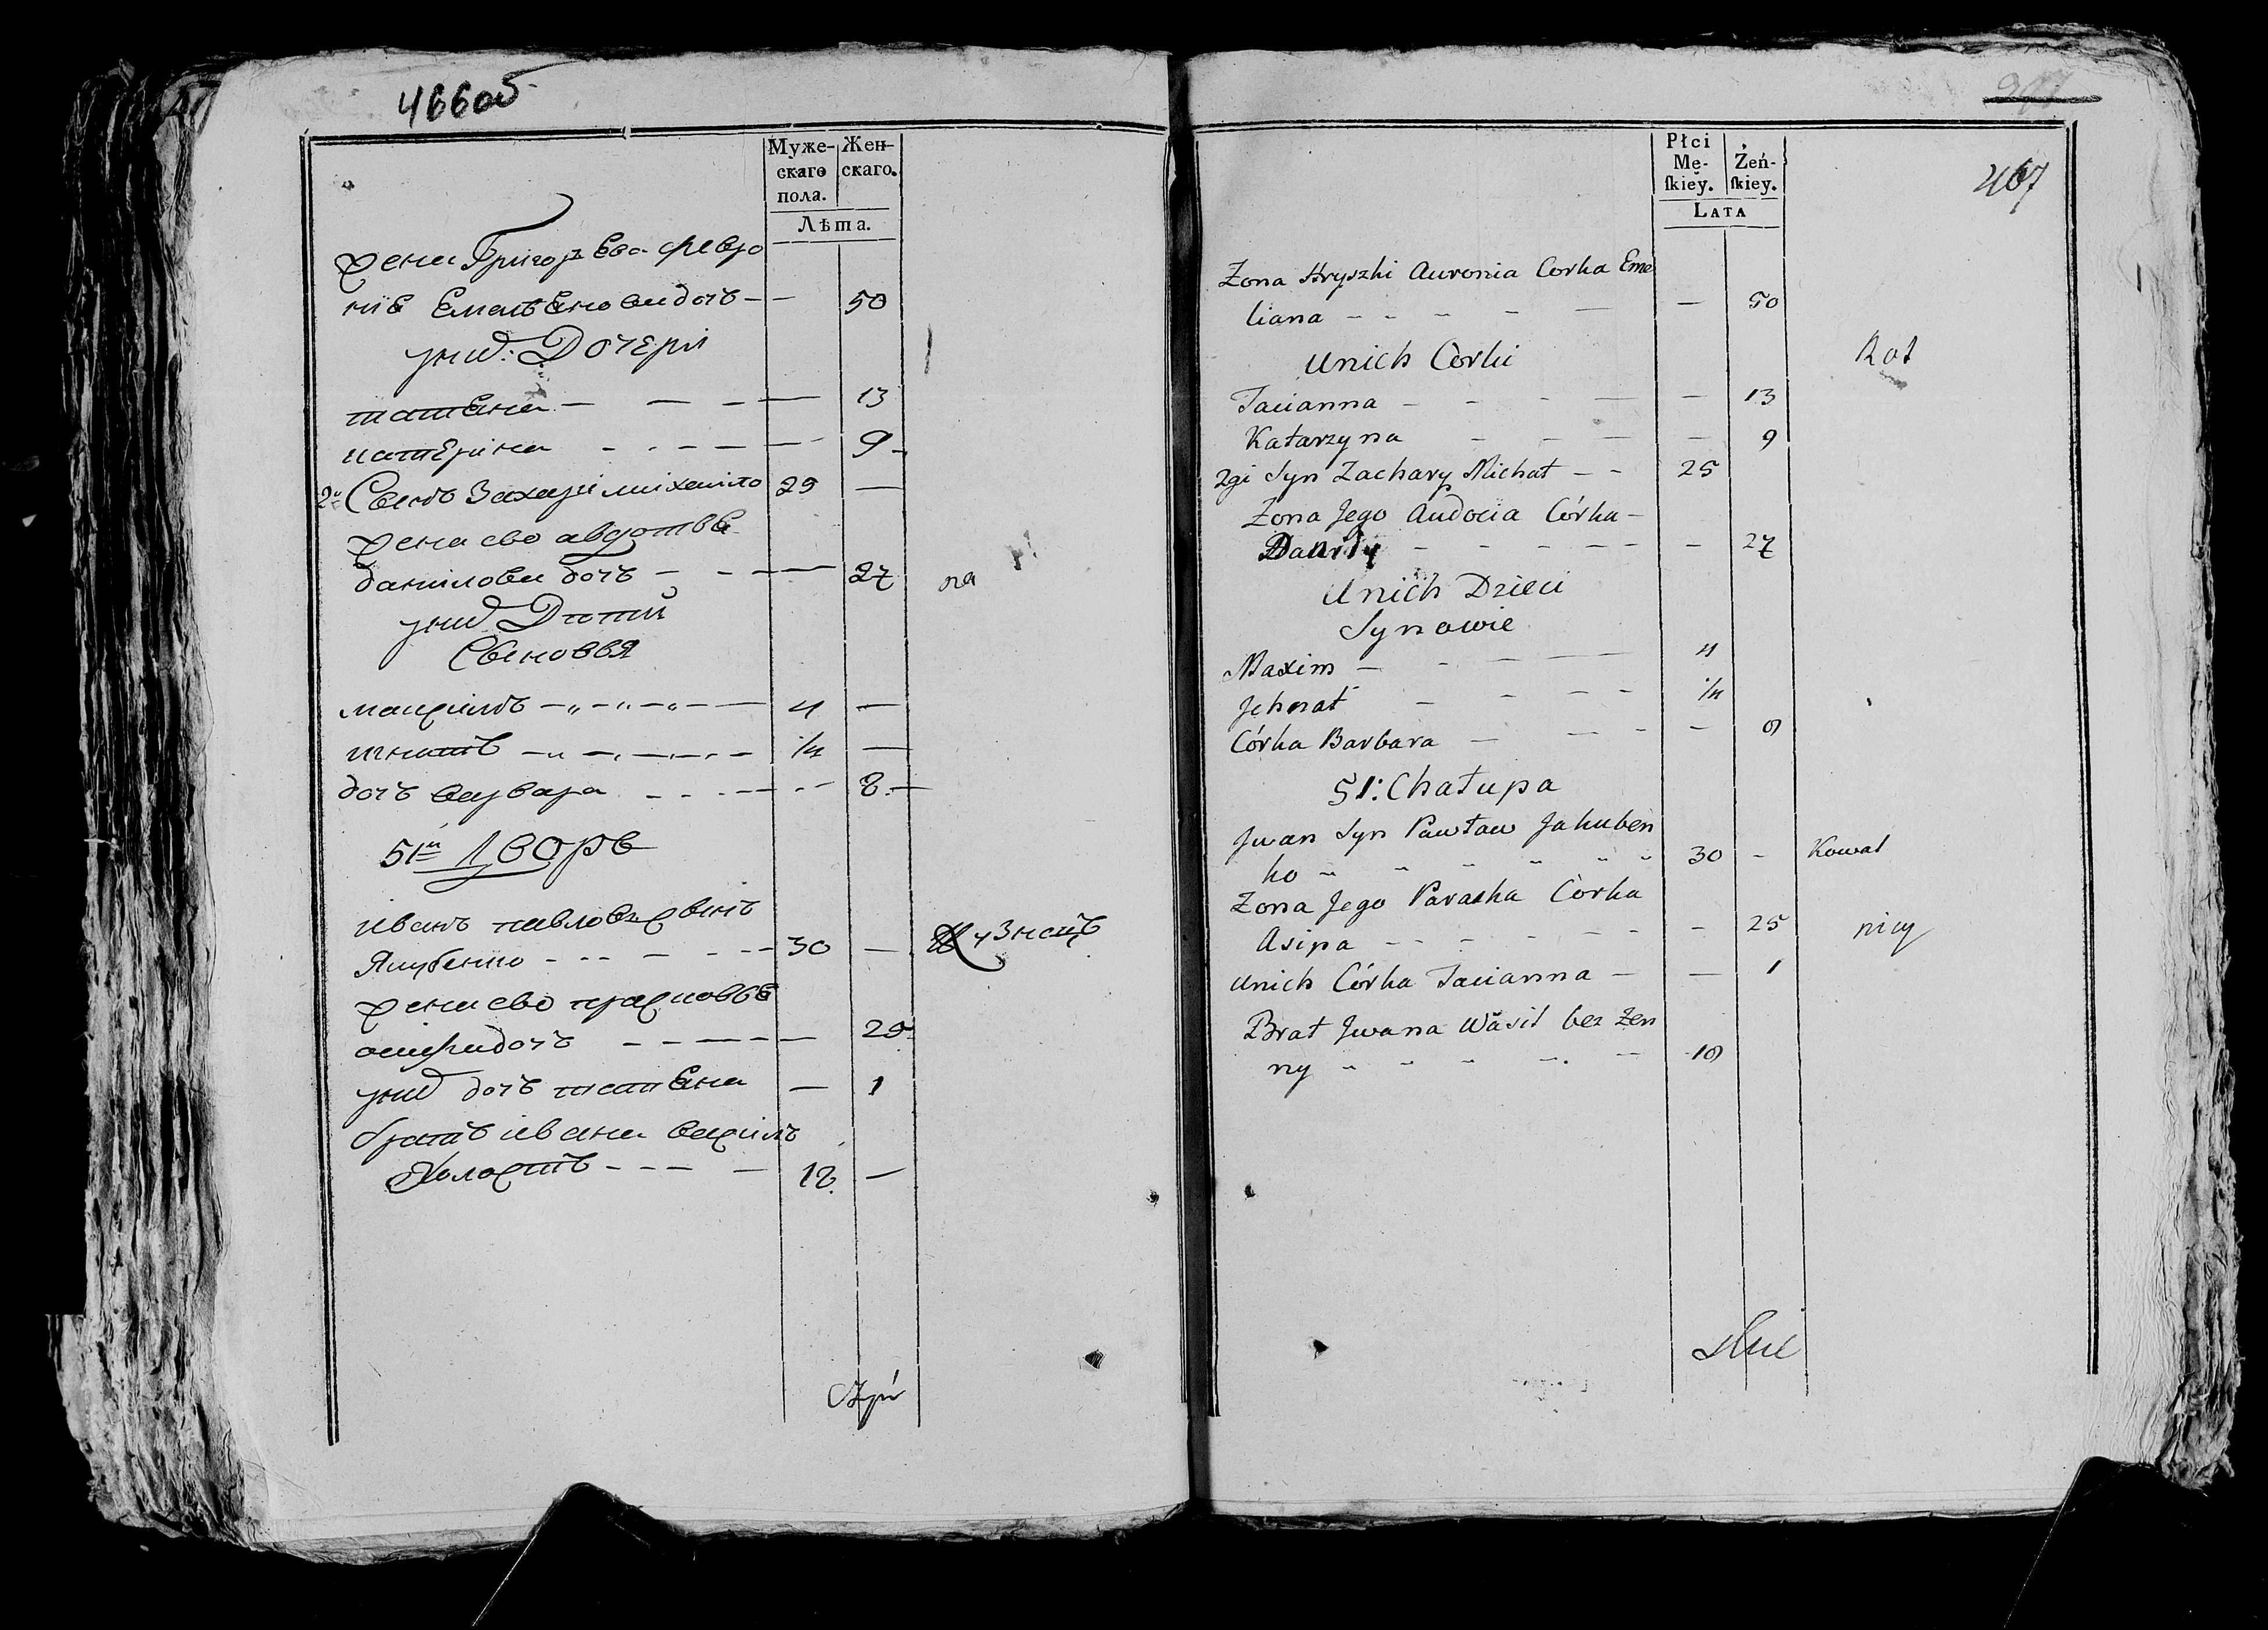 466об
Муже-
скаго
пола.
Жен-
скаго.
Лѣта.
жена Григорьева февро
ніе Емельянова дочь - - 50
у них: Дочери
татьяна - - - - 13
катерина - - - - 9
2й Сынъ Захарі михаило 25 -
жена ево авдотья
данилова дочь - - - 27
у них Дѣти
Сыновья
максимъ - - - - 4 -
игнатъ - - - - 1/4 -
дочь варвара - - - 8 -
51й дворъ
иванъ павловъ сынъ
Якубенко - - - - 30 -
жена ево прасковья
осипа дочь - - - - 25
у них дочь татьяна - 1
братъ ивана василь
Холостъ - - - 18 -
467
Płci
Mę-
ſkiey.
Żeń-
ſkiey.
LATA
Zona Hryszki Auronia Corka Eme
liana - - - - - 50
Unich Córki
Tacianna - - - - 13
Katarzyna - - - - 9
2gi Syn Zachary Michał - - 25
Zona Jego Audocia Córka -
Daniły - - - - - 27
Unich Dzieci
Synowie
Maxim - - - - 4
Jehnat - - - - 1/4
Córka Barbara - - - - 8
51: Chałupa
Jwan Syn Pawław Jakuben
ko - - - - - 30 - Kowal
Zona Jego Paraska Córka
Asipa - - - - - 25
Unich Córka Tacianna - - 1
Brat Jwana Wasil bez Zen
ny - - - - - 18